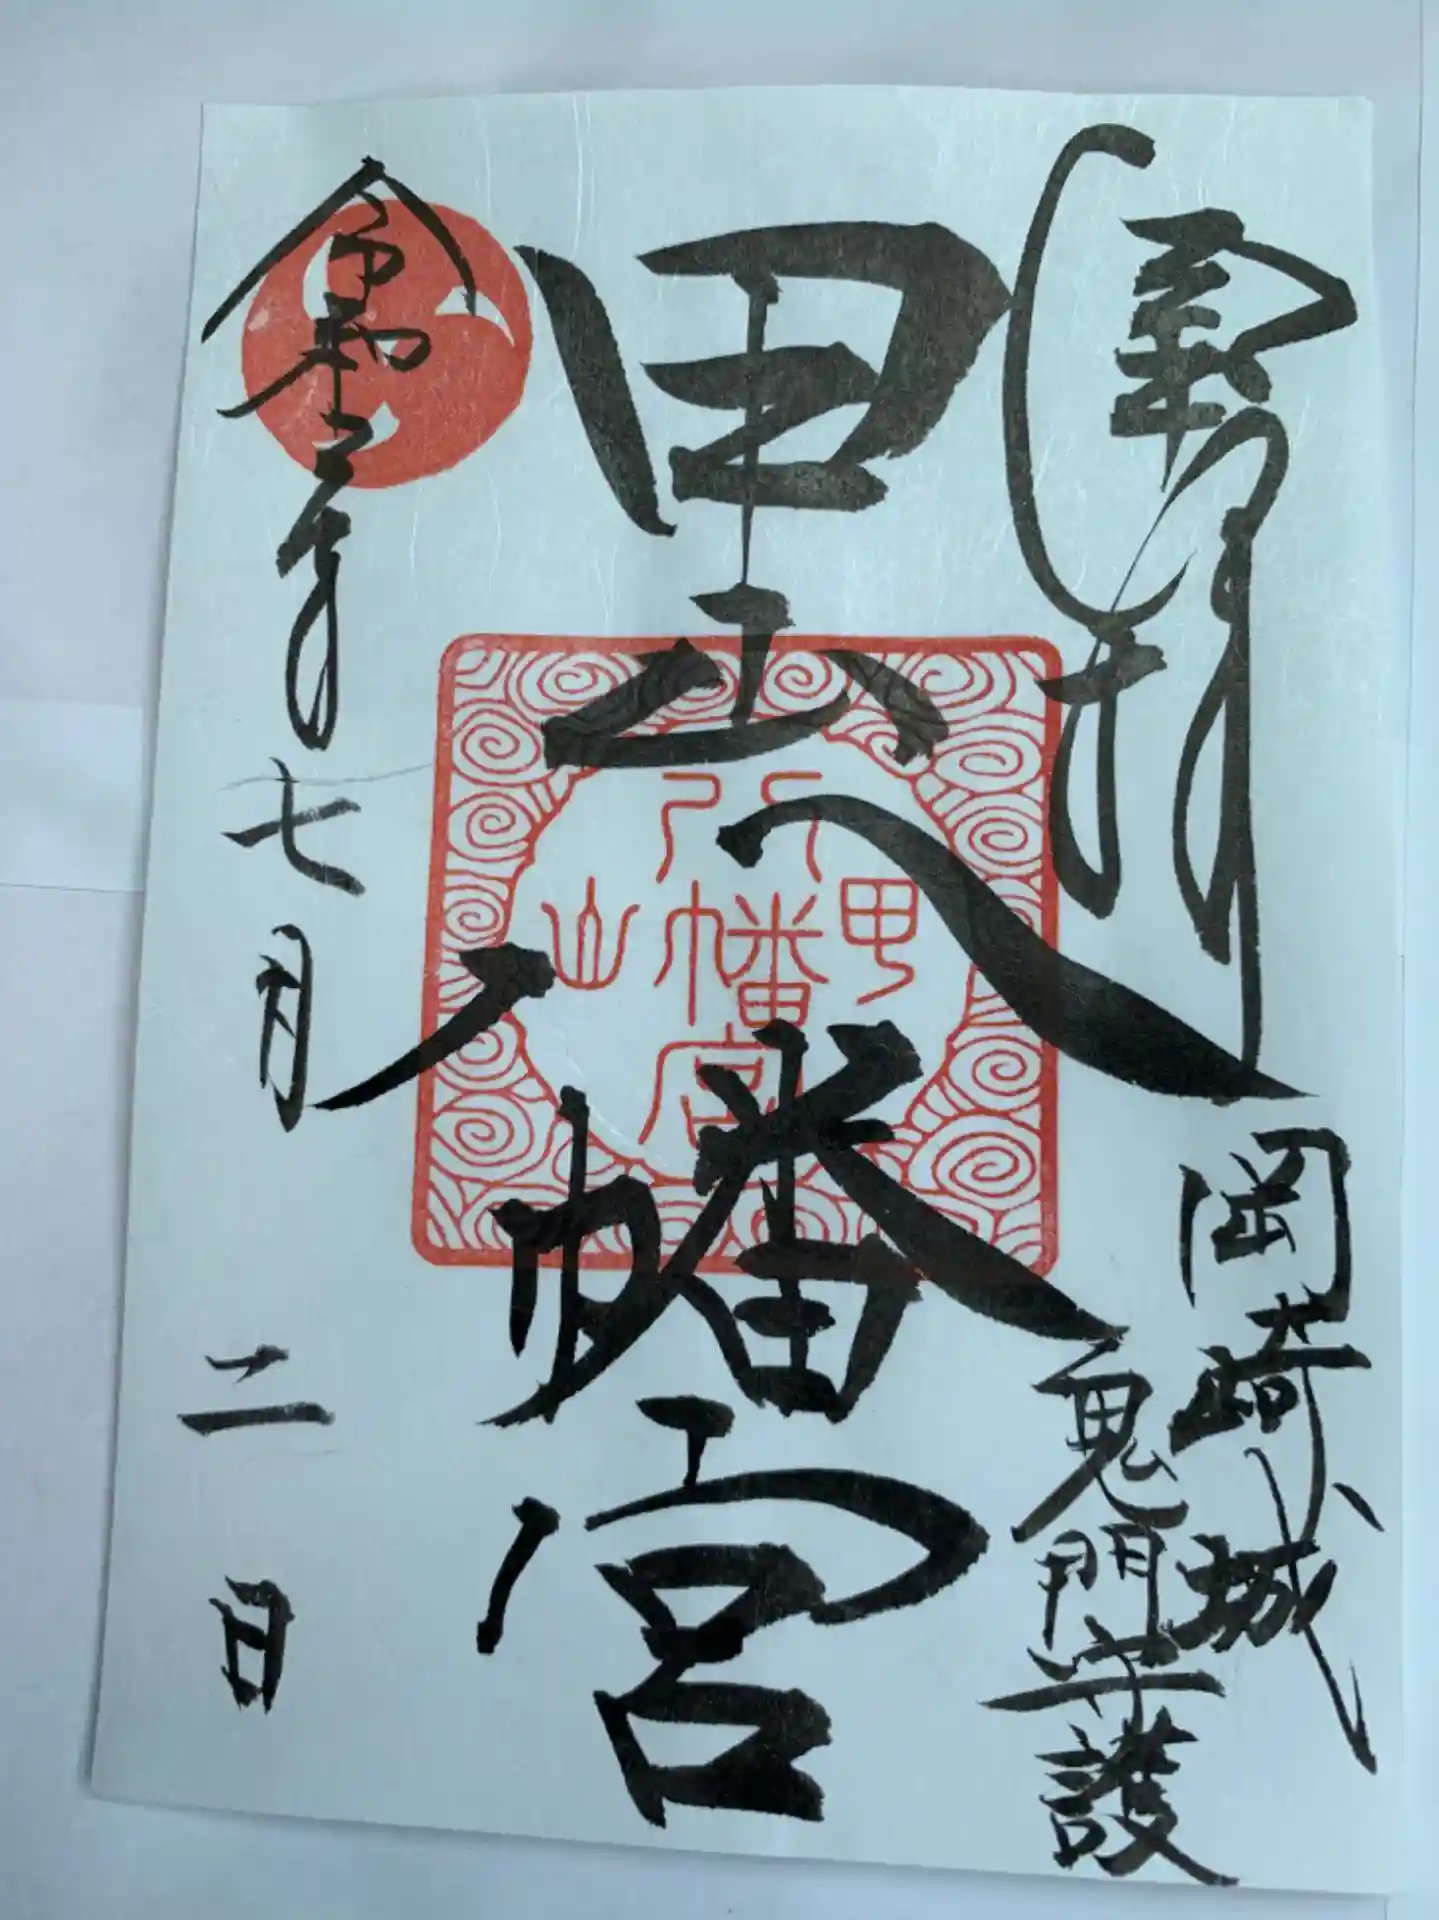 奉拝
岡崎城
鬼門守護
甲山八幡宮
甲
八幡宮
山
令和
年七月二日